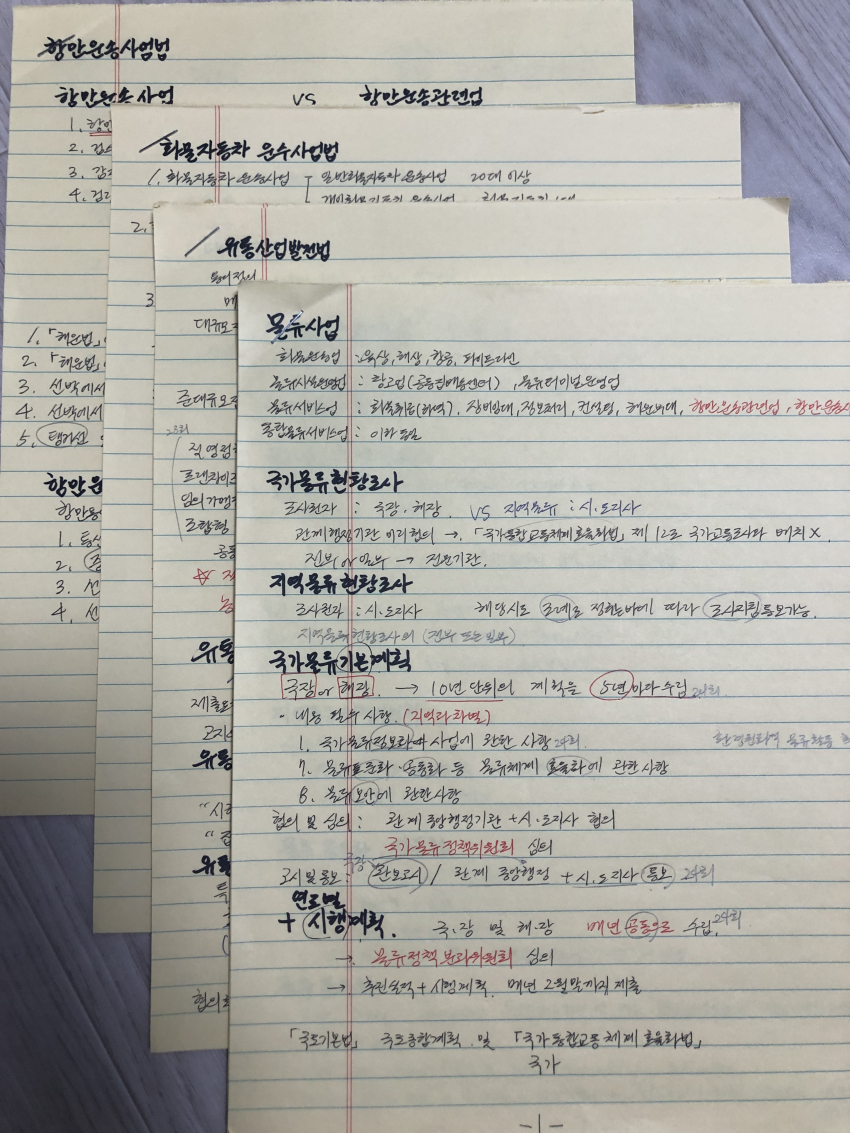 항만운송사업법
항만운송사업 vs 항만운송관련업
1. 항만
2. 검수
3. 감정
4. 검량
1. 「해운법」
2. 「해운법」
3. 선박에서
4. 선박에서
5. 탱커선
항만운
항만용
1. 통선
3. 선
4. 선
화물자동차 운수사업법
1. 화물자동차 운송사업 일반화물자동차 운송사업 20대 이상
개인화물자동차 운송사업
2.
3
유통산업발전법
용어정의
대규모
준대규모점
23회
직영점
프랜차이즈
임의가맹
조합형
공동
유통
제출
고지
유통
"시
"집
유통
협의회
물류사업
화물운송업 : 육상, 해상, 항공, 파이프라인
물류시설운영업 : 창고업(공동집배송센터), 물류터미널운영업
물류서비스업 : 화물취급(하역), 장비임대, 정보처리, 컨설팅, 해운부대, 항만운송관련업, 항만운송사
종합물류서비스업 : 이하 동일
국가물류현황조사
조사권자 : 국장, 해장 VS 지역물류 : 시·도지사
관계행정기관 미리협의 → 「국가통합교통체계효율화법」 제12조 국가교통조사와 배치X.
전부 or 일부 → 전문기관.
지역물류현황조사
조사권자 : 시·도지사 해당시도 조례로 정하는바에 따라 조사지침 통보가능.
지역물류현황조사의 (전부 또는 일부)
국가물류기본계획
국장 or 해장 → 10년 단위의 계획을 5년마다 수립 24회
· 내용 필수사항. (지역과 차별)
1. 국가물류정보화 사업에 관한 사항 24회. 환경친화적 물류활동
7. 물류표준화·공동화 등 물류체계 효율화에 관한사항
8. 물류보안에 관한사항
협의 및 심의 : 관계 중앙행정기관 + 시·도지사 협의
국가물류정책위원회 심의
고시 및 통보 : 국장 관보고시 / 관계 중앙행정 + 시·도지사 통보 24회
연도별
+ 시행계획. 국·장 및 해·장 매년 공동으로 수립. 24회
→ 물류정책분과위원회 심의
→ 추진실적 + 시행계획. 매년 2월말까지 제출
「국토기본법」 국토종합계획 및 「국가통합교통체계효율화법」
국가
-1-